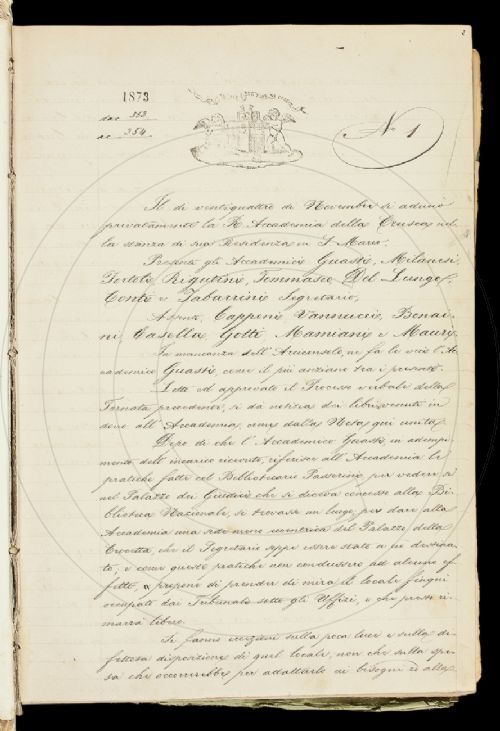 2
1873
dac 353
ac 354
No 1
Il dì ventiquattro di Novembre si aduno
privatamente la R. Accademia della Crusca nel
la stanza di sua Residenza in S. Marco.
Presenti gli Accademici Guasti, Milanesi,
Bertoldi, Rigutini, Tommaseo, Del Lungo,
Conti e Tabarrini Segretario,
Assenti, Capponi, Vannucci, Bonai
ni, Casella, Gotti, Mamiani e Mauri.
In mancanza dell'Arciconsolo, ne fa le veci l'Ac
cademico Guasti, come il più anziano tra i presenti.
Letto ed approvato il Processo verbale della
Tornata precedente, si da notizia dei libri venuti in
dono all'Accademia, come dalla Nota qui unita.
Dopo di che l'Accademico Guasti, in adempi
mento dell'incarico ricevuto, riferisce all'Accademia le
pratiche fatte col Bibliotecario Passerini per vedere, se
nel Palazzo dei Giudici che si diceva concesso alla Bi
blioteca Nazionale, si trovasse un luogo per dare alla
Accademia una sede meno eccentrica del Palazzo della
Crocetta, che il Segretario seppe essere stato a lei destina
to, e come queste pratiche non conducessero ad alcuno ef
fetto, e propone di prender di mira il locale finqui
occupato dai Tribunali sotto gli Uffizi, e che presto ri
marrà libero.
Si fanno eccezioni sulla poca luce e sulla di
fettosa disposizione di quel locale, non che sulla spe
sa che occorrerebbe per adattarlo ai bisogni e alla